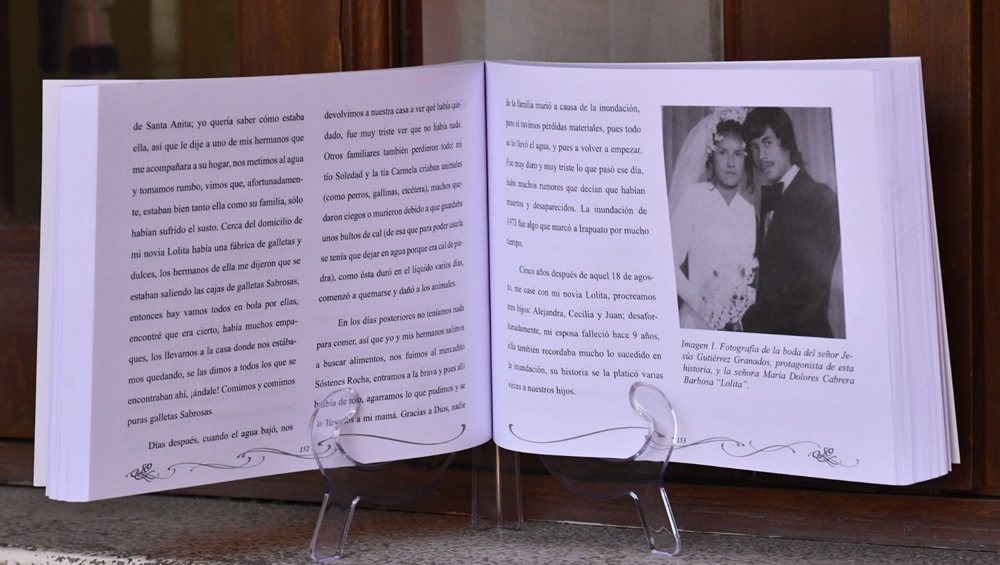 de Santa Anita; yo quería saber cómo estaba
ella, así que le dije a uno de mis hermanos que
me acompañara a su hogar, nos metimos al agua
y tomamos rumbo, vimos que, afortunadamen-
te, estaban bien tanto ella como su familia, sólo
habían sufrido el susto. Cerca del domicilio de
mi novia Lolita había una fábrica de galletas y
dulces, los hermanos de ella me dijeron que se
estaban saliendo las cajas de galletas Sabrosas,
entonces hay vamos todos en bola por ellas,
encontré que era cierto, había muchos empa-
ques, los llevamos a la casa donde nos estába-
mos quedando, se las dimos a todos los que se
encontraban ahí, ¡ándale! Comimos y comimos
puras galletas Sabrosas.
Días después, cuando el agua bajó, nos
devolvimos a nuestra casa a ver qué había que-
dado, fue muy triste ver que no había nada.
Otros familiares también perdieron todo: mi
tío Soledad y la tía Carmela criaban animales
(como perros, gallinas, etcétera), muchos que-
daron ciegos o murieron debido a que guardaba
unos bultos de cal (de esa que para poder usarla
se tenía que dejar en agua porque era cal de pie-
dra), como ésta duró en el líquido varios días,
comenzó a quemarse y dañó a los animales.
En los días posteriores no teníamos nada
para comer, así que yo y mis hermanos salimos
a buscar alimentos, nos fuimos al mercadito
Sóstenes Rocha, entramos a la brava y pues allí
había de todo, agarramos lo que pudimos y se
lo llevamos a mi mamá. Gracias a Dios, nadie
152
de la familia murió a causa de la inundación,
pero sí tuvimos pérdidas materiales, pues todo
se lo llevó el agua, y pues a volver a empezar.
Fue muy duro y muy triste lo que pasó ese día,
hubo muchos rumores que decían que habían
muertos y desaparecidos. La inundación de
1973 fue algo que marcó a Irapuato por mucho
tiempo.
Cinco años después de aquel 18 de agos-
to, me casé con mi novia Lolita, procreamos
tres hijos: Alejandra, Cecilia y Juan; desafor-
tunadamente, mi esposa falleció hace 9 años,
ella también recordaba mucho lo sucedido en
la inundación, su historia se la platicó varias
veces a nuestros hijos.
Imagen 1. Fotografía de la boda del señor Je-
sús Gutiérrez Granados, protagonista de esta
historia, y la señora María Dolores Cabrera
Barbosa “Lolita”.
153